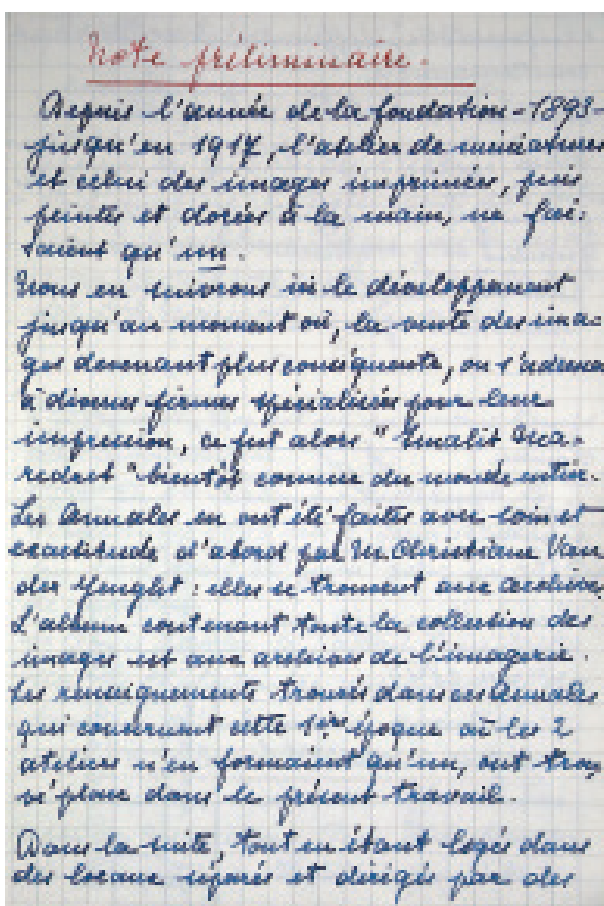 Note préliminaire.
Depuis l'année de la fondation - 1893 -
jusqu'en 1917, l'atelier de miniatures
et celui des images imprimées, puis
peintes et dorées à la main, ne fai-
saient qu'un.
Nous en suivrons ici le développement
jusqu'au moment où, la vente des ima-
ges devenant plus conséquente, on s'adressa
à diverses firmes spécialisées pour leur
impression, ce fut alors "Imalit Mca-
redret" bientôt connue du monde entier.
Les Annales en ont été faites avec soin et
exactitude d'abord par M. Christiane Van
der : elles se trouvent aux archives.
L'album contenant toute la collection des
images est aux archives de l'imagerie.
Les renseignements trouvés dans ces Annales
qui concernent cette 1ère époque où les 2
ateliers n'en formaient qu'un, ont trou-
vé place dans le présent travail.
Dans la suite, tout en étant logés dans
des locaux séparés et dirigés par des